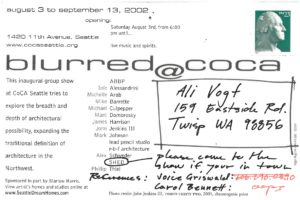 august 3 to september 13, 2002
opening:
Saturday August 3rd, from 6:00
pm until...
1420 11th Avenue, Seattle
www.cocaseattle.org
live music and spirits.
blurred@coca
This inaugural group show
at CoCA Seattle tries to
explore the breadth and
depth of architectural
possibility, expanding the
traditional definition of
architecture in the
Northwest.
ARBP
Iole Alessandrini
Michelle Arab
Mike Barrette
Michael Culpepper
Marc Dombrosky
James Harrison
John Jenkins III
Mark Johnson
lead pencil studio
Alex Schweder
SHED
Philip Thiel
Ali Vogt
159 Eastside Rd.
Twisp WA 98856
please come to the
show if your in town
References: Voice Griswold:
Carol Bennett:
Sponsored in part by Marlow Harris.
View artist's homes and studios online at
www.SeattleDreamHomes.com